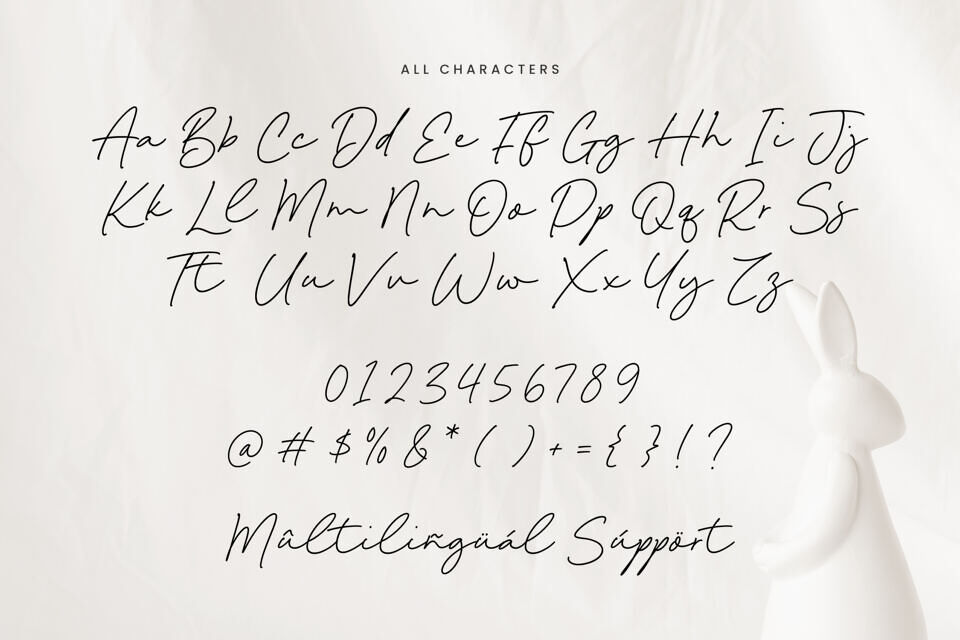 ALL CHARACTERS
Aa Bb Cc Dd Ee Ff Gg Hh Ii Jj
Kk Ll Mm Nn Oo Pp Qq Rr Ss
Tt Uu Vv Ww Xx Yy Zz
0123456789
@ # $ % & * ( ) + = { } ! ?
Mûltiliñgüál Súppört